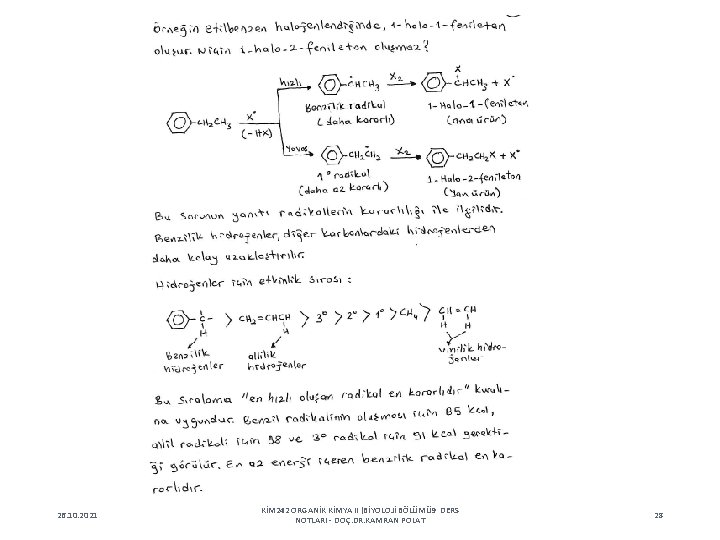 Örneğin etilbenzen halojenlendiğinde, 1-halo-1-feniletan
oluşur. Niçin 1-halo-2-feniletan oluşmaz?
hızlı
ĊHCH3
X2
X
CHCH3 + X•
Benzilik radikul
(daha kararlı)
1-Halo-1-feniletan
(ana ürün)
CH2CH3
X•
(-HX)
yavaş
CH2ĊH2
X2
CH2CH2X + X•
1° radikul
(daha az kararlı)
1-Halo-2-feniletan
(Yan ürün)
Bu sorunun yanıtı radikallerin kararlılığı ile ilgilidir.
Benzilik hidrojenler, diğer karbonlardaki hidrojenlerden
daha kolay uzaklaştırılır.
Hidrojenler için etkinlik sırası:
C- > CH2=CHCH > 3° > 2° > 1° > CH4 > CH=CH
H H H H
Benzilik
hidrojenler
allilik
hidrojenler
vinilik hidro-
jenler
Bu sıralama "en hızlı oluşan radikal en kararlıdır" kuralı-
na uygundur. Benzil radikalinin oluşması için 85 kcal,
allil radikali için 88 ve 3° radikal için 91 kcal gerekti-
ği görülür. En az enerji içeren benzilik radikal en ka-
rarlıdır.
26.10.2021
KİM242 ORGANİK KİMYA II (BİYOLOJİ BÖLÜMÜ)- DERS
NOTLARI - DOÇ.DR.KAMRAN POLAT
28